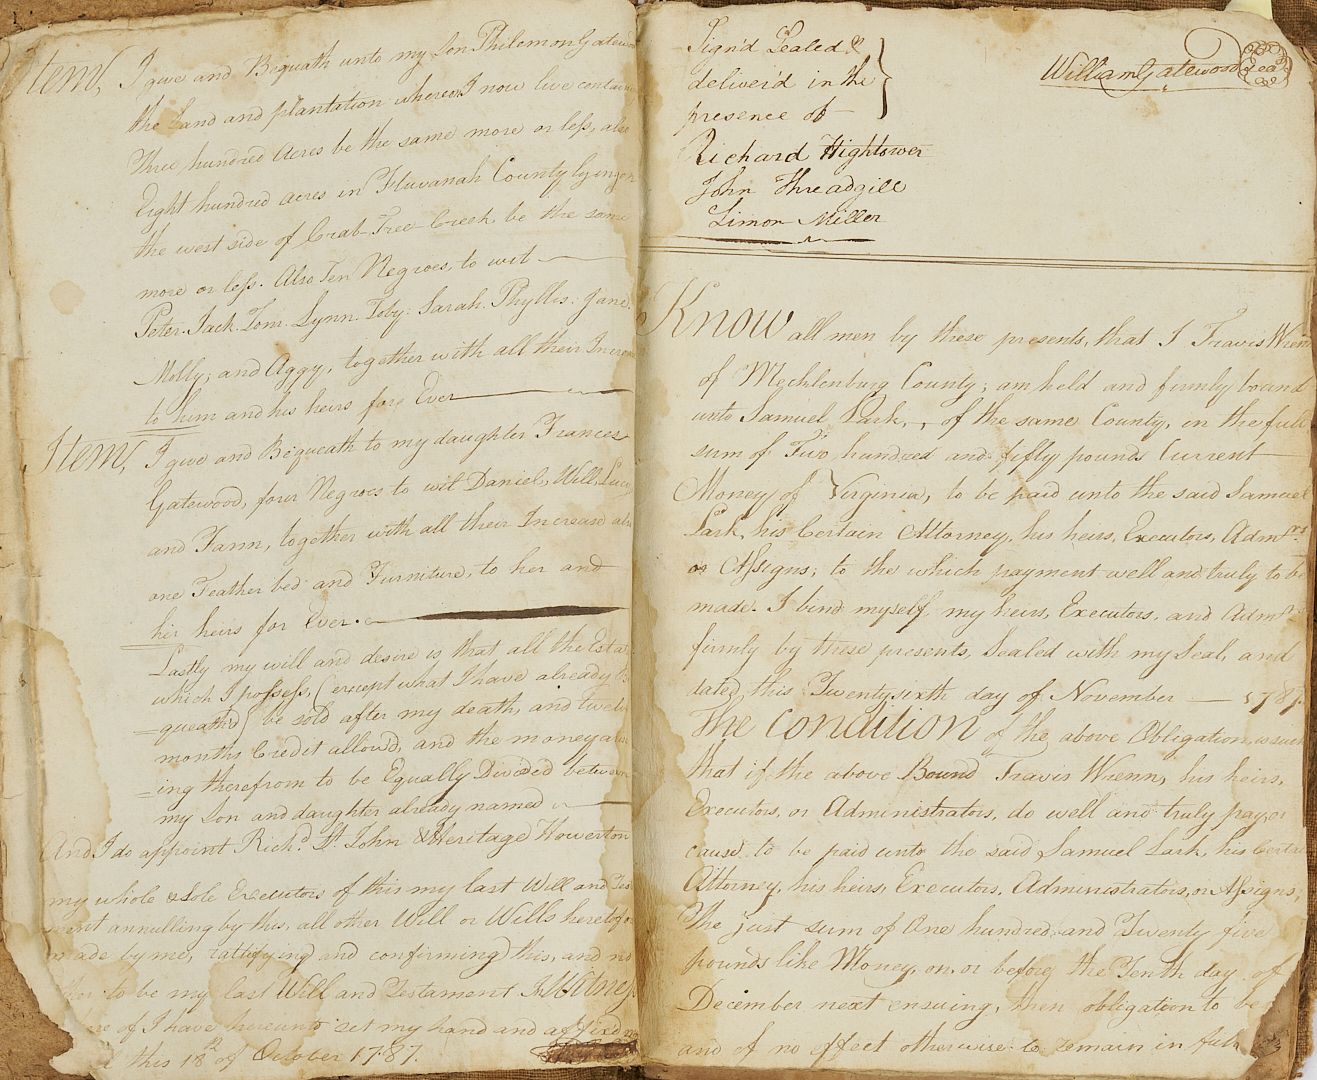 Item, I give and Bequeath unto my Son Philemon Gatewood
the Land and plantation whereon I now live containing
Three hundred Acres be the same more or less, also
Eight hundred acres in Fluvanah County lying on
the west side of Crab-Tree Creek be the same
more or less. Also Ten Negroes, to wit
Peter. Jack. Tom. Lynn. Toby. Sarah. Phyllis. Jane.
Molly; and Aggy, together with all their Increase
to him and his heirs fore Ever
Item, I give and Bequeath to my daughter Frances
Gatewood, four Negroes to wit Daniel, Will, Lucy
and Fann, together with all their Increase also
one Feather bed and Furniture, to her and
her heirs for Ever.
Lastly my will and desire is that all the Esta
which I possess, (except what I have already be
=queath'd) be sold after my death, and twelve
months Credit allow'd, and the money aris
=ing therefrom to be Equally Divided between
my Son and daughter already named
And I do appoint Rich.d St. John & Heritage Howerton
my whole & sole Executors of this my last Will and Tes
ment annulling by this, all other Will or Wills heretofor
made by me, rattifying and confirming this, and no
ther to be my last Will and Testament In Witness
of I have hereunto set my hand and affixed my
this 18th of October 1787.
Sign'd Sealed &
deliver'd in the
presence of
William Gatewood Seal
Richard Hightower
John Threadgill
Simon Miller
Know all men by these presents, that I Travis Wrenn
of Mecklenburg County; am held and firmly bound
unto Samuel Lark, of the same County, in the full
sum of Two hundred and fifty pounds Current
Money of Virginia, to be paid unto the said Samuel
Lark, his Certain Attorney, his heirs, Executors, Adm.rs
or Assigns; to the which payment well and truly to be
made. I bind myself, my heirs, Executors, and Adm.rs
firmly by these presents, Sealed with my Seal, and
dated this Twenty sixth day of November 1787.
The Condition of the above Obligation, is such
that if the above Bound Travis Wrenn, his heirs,
Executors, or Administrators, do well and truly pay, or
cause to be paid unto the said Samuel Lark, his Certain
Attorney, his heirs, Executors, Administrators, or Assigns;
The just sum of One hundred and Twenty five
pounds like Money, on, or before the Tenth day of
December next ensuing, then obligation to be
and of no effect otherwise to remain in full